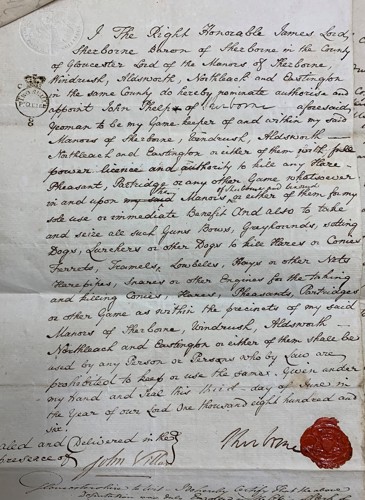 I The Right Honorable James Lord
Sherborne Baron of Sherborne in the County
of Gloucester Lord of the Manors of Sherborne,
Windrush, Aldsworth, Northleach and Eastington
in the same County do hereby nominate authorise and
appoint John Phelps of Sherborne aforesaid
Yeoman to be my Game keeper of and within my said
Manors of Sherborne, Windrush, Aldsworth
Northleach and Eastington or either of them with full
power licence and authority to kill any Hare
Pheasant, Partridge or any other Game whatsoever
in and upon my said Manors or either of them for my
sole use or immediate Benefit And also to take
and seize all such Guns Bows, Greyhounds, setting
Dogs, Lurchers or other Dogs to kill Hares or Conies
Ferrets, Tramels, Lowbells, Hays or other Nets
Harepipes, Snares or other Engines for the taking
and killing Conies, Hares, Pheasants, Partridges
or other Game as within the precincts of my said
Manors of Sherborne, Windrush, Aldsworth
Northleach and Eastington or either of them shall be
used by any Person or Persons who by Law are
prohibited to keep or use the same. Given under
my hand and Seal this third day of June in
the Year of our Lord One thousand eight hundred and
six
Sherborne
aled and Delivered in the
presence of
John
Gloucestershire to wit